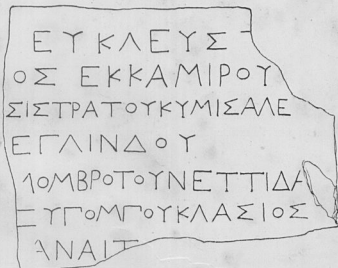 ΕΥΚΛΕΥΣ
ΟΣ ΕΚΚΑΜΙΡΟΥ
ΣΙΣΤΡΑΤΟΥΚΥΜΙΣΑΛΕ
ΕΓΛΙΝΔΟΥ
ΛΟΜΒΡΟΤΟΥΝΕΤΤΙΔΑ
ΕΥΠΟΜΠΟΥΚΛΑΣΙΟΣ
ΑΝΑΙΤ